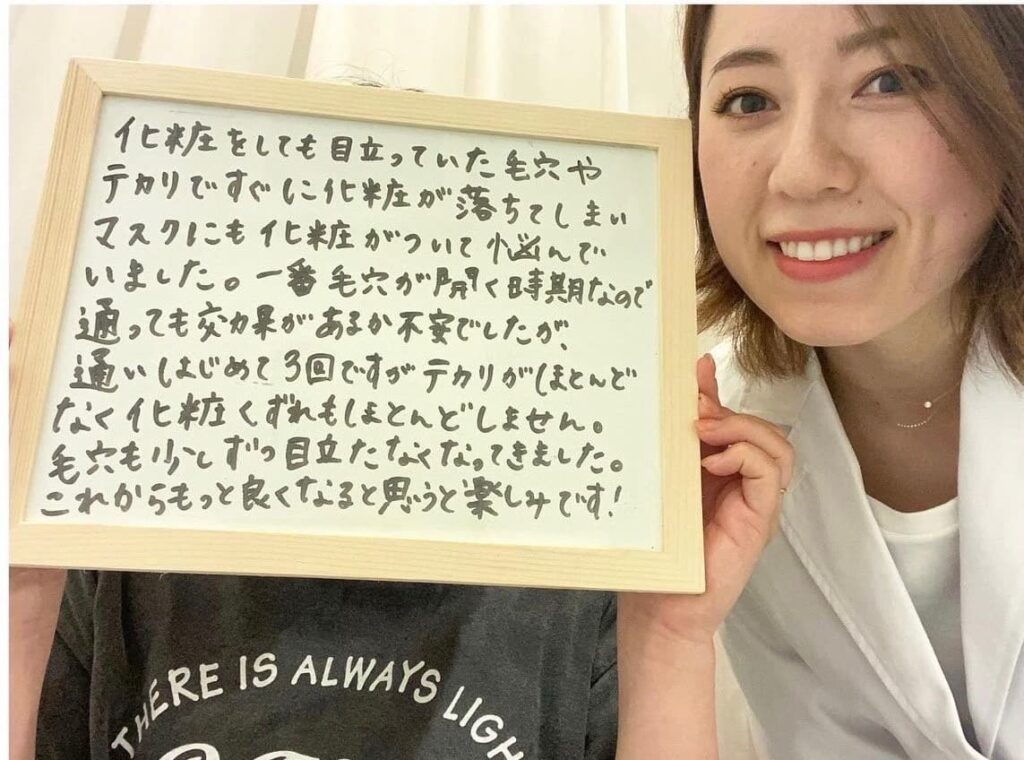 化粧をしても目立っていた毛穴や
テカリですぐに化粧が落ちてしまい
マスクにも化粧がついて悩んで
いました。一番毛穴が開く時期なので
通っても効果があるか不安でしたが、
通いはじめて3回ですがテカリがほとんど
なく化粧くずれもほとんどしません。
毛穴も少しずつ目立たなくなってきました。
これからもっと良くなると思うと楽しみです!
THERE IS ALWAYS LIGH